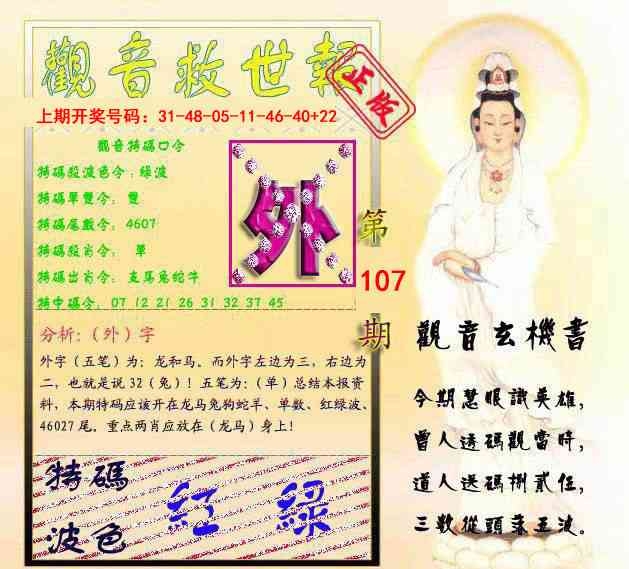 觀音救世報
正版
上期开奖号码：31-48-05-11-46-40+22
觀音特碼口令
特碼殺波色令：綠波
特碼單雙令： 雙
特碼尾數令： 4607
特碼殺肖令： 單
特碼出肖令： 龙馬兔蛇牛
特中碼令： 07 12 21 26 31 32 37 45
外
第
107
期
分析：（外）字
外字（五笔）为：龙和马。而外字左边为三，右边为
二，也就是说 32（兔）！五笔为：（单）总结本报资
料，本期特码应该开在龙马兔狗蛇羊、单数、红绿波、
46027 尾。重点两肖应放在（龙马）身上！
特碼
波色
紅 綠
觀音玄機書
今期慧眼識英雄，
曾人透碼觀當時，
道人送碼捌貳伍，
三數從頭來五波。